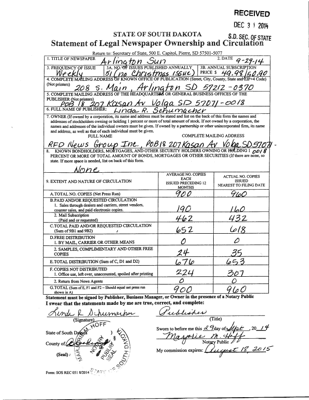 RECEIVED
DEC 31 2014
S.D. SEC. OF STATE
STATE OF SOUTH DAKOTA
Statement of Legal Newspaper Ownership and Circulation
Return to: Secretary of State, 500 E. Capitol, Pierre, SD 57501-5077
1. TITLE OF NEWSPAPER Arlington Sun 2. DATE 9-29-14
3. FREQUENCY OF ISSUE Weekly 3A. NO. OF ISSUES PUBLISHED ANNUALLY 51 (no Christmas issue) 3B. ANNUAL SUBSCRIPTION PRICE $
4. COMPLETE MAILING ADDRESS OF KNOWN OFFICE OF PUBLICATION (Street, City, County, State and ZIP+4 Code)
(Not printer) 208 S. Main, Arlington SD 57212-0370
5. COMPLETE MAILING ADDRESS OF THE HEADQUARTERS OR GENERAL BUSINESS OFFICES OF THE
PUBLISHER (Not printer) POB 18 207 Kasan Av Volga SD 57071-0018
6. FULL NAME OF PUBLISHER: Linda R. Schumacher
7. OWNER (If owned by a corporation, its name and address must be stated and list on the back of this form the names and
addresses of stockholders owning or holding 1 percent or more of total amount of stock. If not owned by a corporation, the
names and addresses of the individual owners must be given. If owned by a partnership or other unincorporated firm, its name
and address, as well as that of each individual must be given.
FULL NAME COMPLETE MAILING ADDRESS
RFD News Group Inc. POB 18 207 Kasan Av Volga SD 57071-0018
8. KNOWN BONDHOLDERS, MORTGAGEES, AND OTHER SECURITY HOLDERS OWNING OR HOLDING 1
PERCENT OR MORE OF TOTAL AMOUNT OF BONDS, MORTGAGES OR OTHER SECURITIES (If there are none, so
state. If more space is needed, list on back of this form.
None
9. EXTENT AND NATURE OF CIRCULATION AVERAGE NO. COPIES EACH ISSUED PRECEDING 12 MONTHS ACTUAL NO. COPIES ISSUED NEAREST TO FILING DATE
A. TOTAL NO. COPIES (Net Press Run) 900 960
B. PAID AND/OR REQUESTED CIRCULATION
1. Sales through dealers and carriers, street vendors,
counter sales, and paid electronic copies. 190
2. Mail Subscription
(Paid and or requested) 462 432
C. TOTAL PAID AND/OR REQUESTED CIRCULATION
(Sum of 9B1 and 9B2) 652 618
D. FREE DISTRIBUTION
1. BY MAIL, CARRIER OR OTHER MEANS 0 0
2. SAMPLES, COMPLIMENTARY AND OTHER FREE
COPIES 24 35
E. TOTAL DISTRIBUTION (Sum of C, D1 and D2) 676 653
F. COPIES NOT DISTRIBUTED
1. Office use, left over, unaccounted, spoiled after printing 224 307
2. Return from News Agents 0 0
G. TOTAL (Sum of E, F1 and F2 - Should equal net press run
shown in A) 900 960
Statement must be signed by Publisher, Business Manager, or Owner in the presence of a Notary Public
I swear that the statements made by me are true, correct, and complete:
Linda R. Schumacher Publisher
(Signature) (Title)
State of South Dakota Sworn to before me this day of Sept, 20 14
County of Marjorie M. Hoff
Notary Public
(Seal) My commission expires: August 18, 2015
Form: SOS REC 051 9/2014